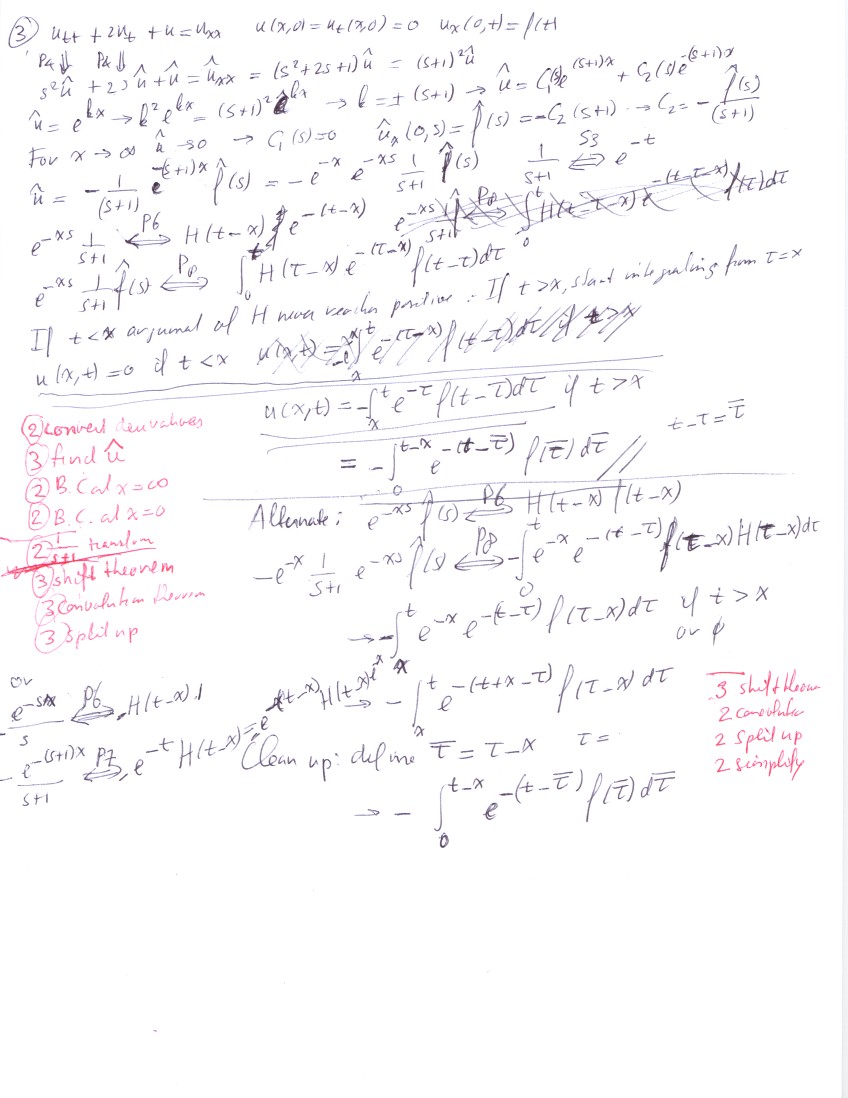 ③ u_tt + 2u_t + u = u_xx   u(x,0) = u_t(x,0) = 0   u_x(0,t) = f(t)
P4 ⇓   P4 ⇓
s²û + 2sû + û = û_xx = (s²+2s+1)û = (s+1)²û
û = e^{kx} → k²e^{kx} = (s+1)²e^{kx} → k = ±(s+1) → û = C₁(s)e^{(s+1)x} + C₂(s)e^{-(s+1)x}
For x → ∞ û → 0 → C₁(s) = 0   û_x(0,s) = f̂(s) = -C₂(s+1) → C₂ = - f̂(s)/(s+1)
û = - 1/(s+1) e^{-(s+1)x} f̂(s) = -e^{-x} e^{-xs} 1/(s+1) f̂(s)   1/(s+1) ⟺ S3 e^{-t}
e^{-xs} 1/(s+1) ⟺ P6 H(t-x) e^{-(t-x)}
e^{-xs} 1/(s+1) f̂(s) ⟺ P8 ∫_0^t H(τ-x) e^{-(τ-x)} f(t-τ)dτ
If t < x argument of H never reaches positive. If t > x, start integrating from τ = x
u(x,t) = 0 if t < x
u(x,t) = -∫_x^t e^{-τ} f(t-τ)dτ if t > x
= -∫_0^{t-x} e^{-(t-τ̄)} f(τ̄) dτ̄ //   t-τ = τ̄
② convert derivatives
③ find û
② B.C. at x=∞
② B.C. at x=0
② 1/(s+1) transform
③ shift theorem
③ convolution theorem
③ split up
Alternate: e^{-xs} f̂(s) ⟺ P6 H(t-x) f(t-x)
-e^{-x} 1/(s+1) e^{-xs} f̂(s) ⟺ P8 -∫_0^t e^{-x} e^{-(t-τ)} f(τ-x) H(τ-x)dτ
→ -∫_x^t e^{-x} e^{-(t-τ)} f(τ-x)dτ if t > x
or ∅
→ -∫_x^t e^{-(t+x-τ)} f(τ-x) dτ
or
e^{-sx}/s ⟺ P6 H(t-x).1
- e^{-(s+1)x}/(s+1) ⟺ P7, e^{-t} H(t-x) =
Clean up: define τ̄ = τ-x   τ =
→ -∫_0^{t-x} e^{-(t-τ̄)} f(τ̄) dτ̄
3 shift theorem
2 convolution
2 split up
2 simplify